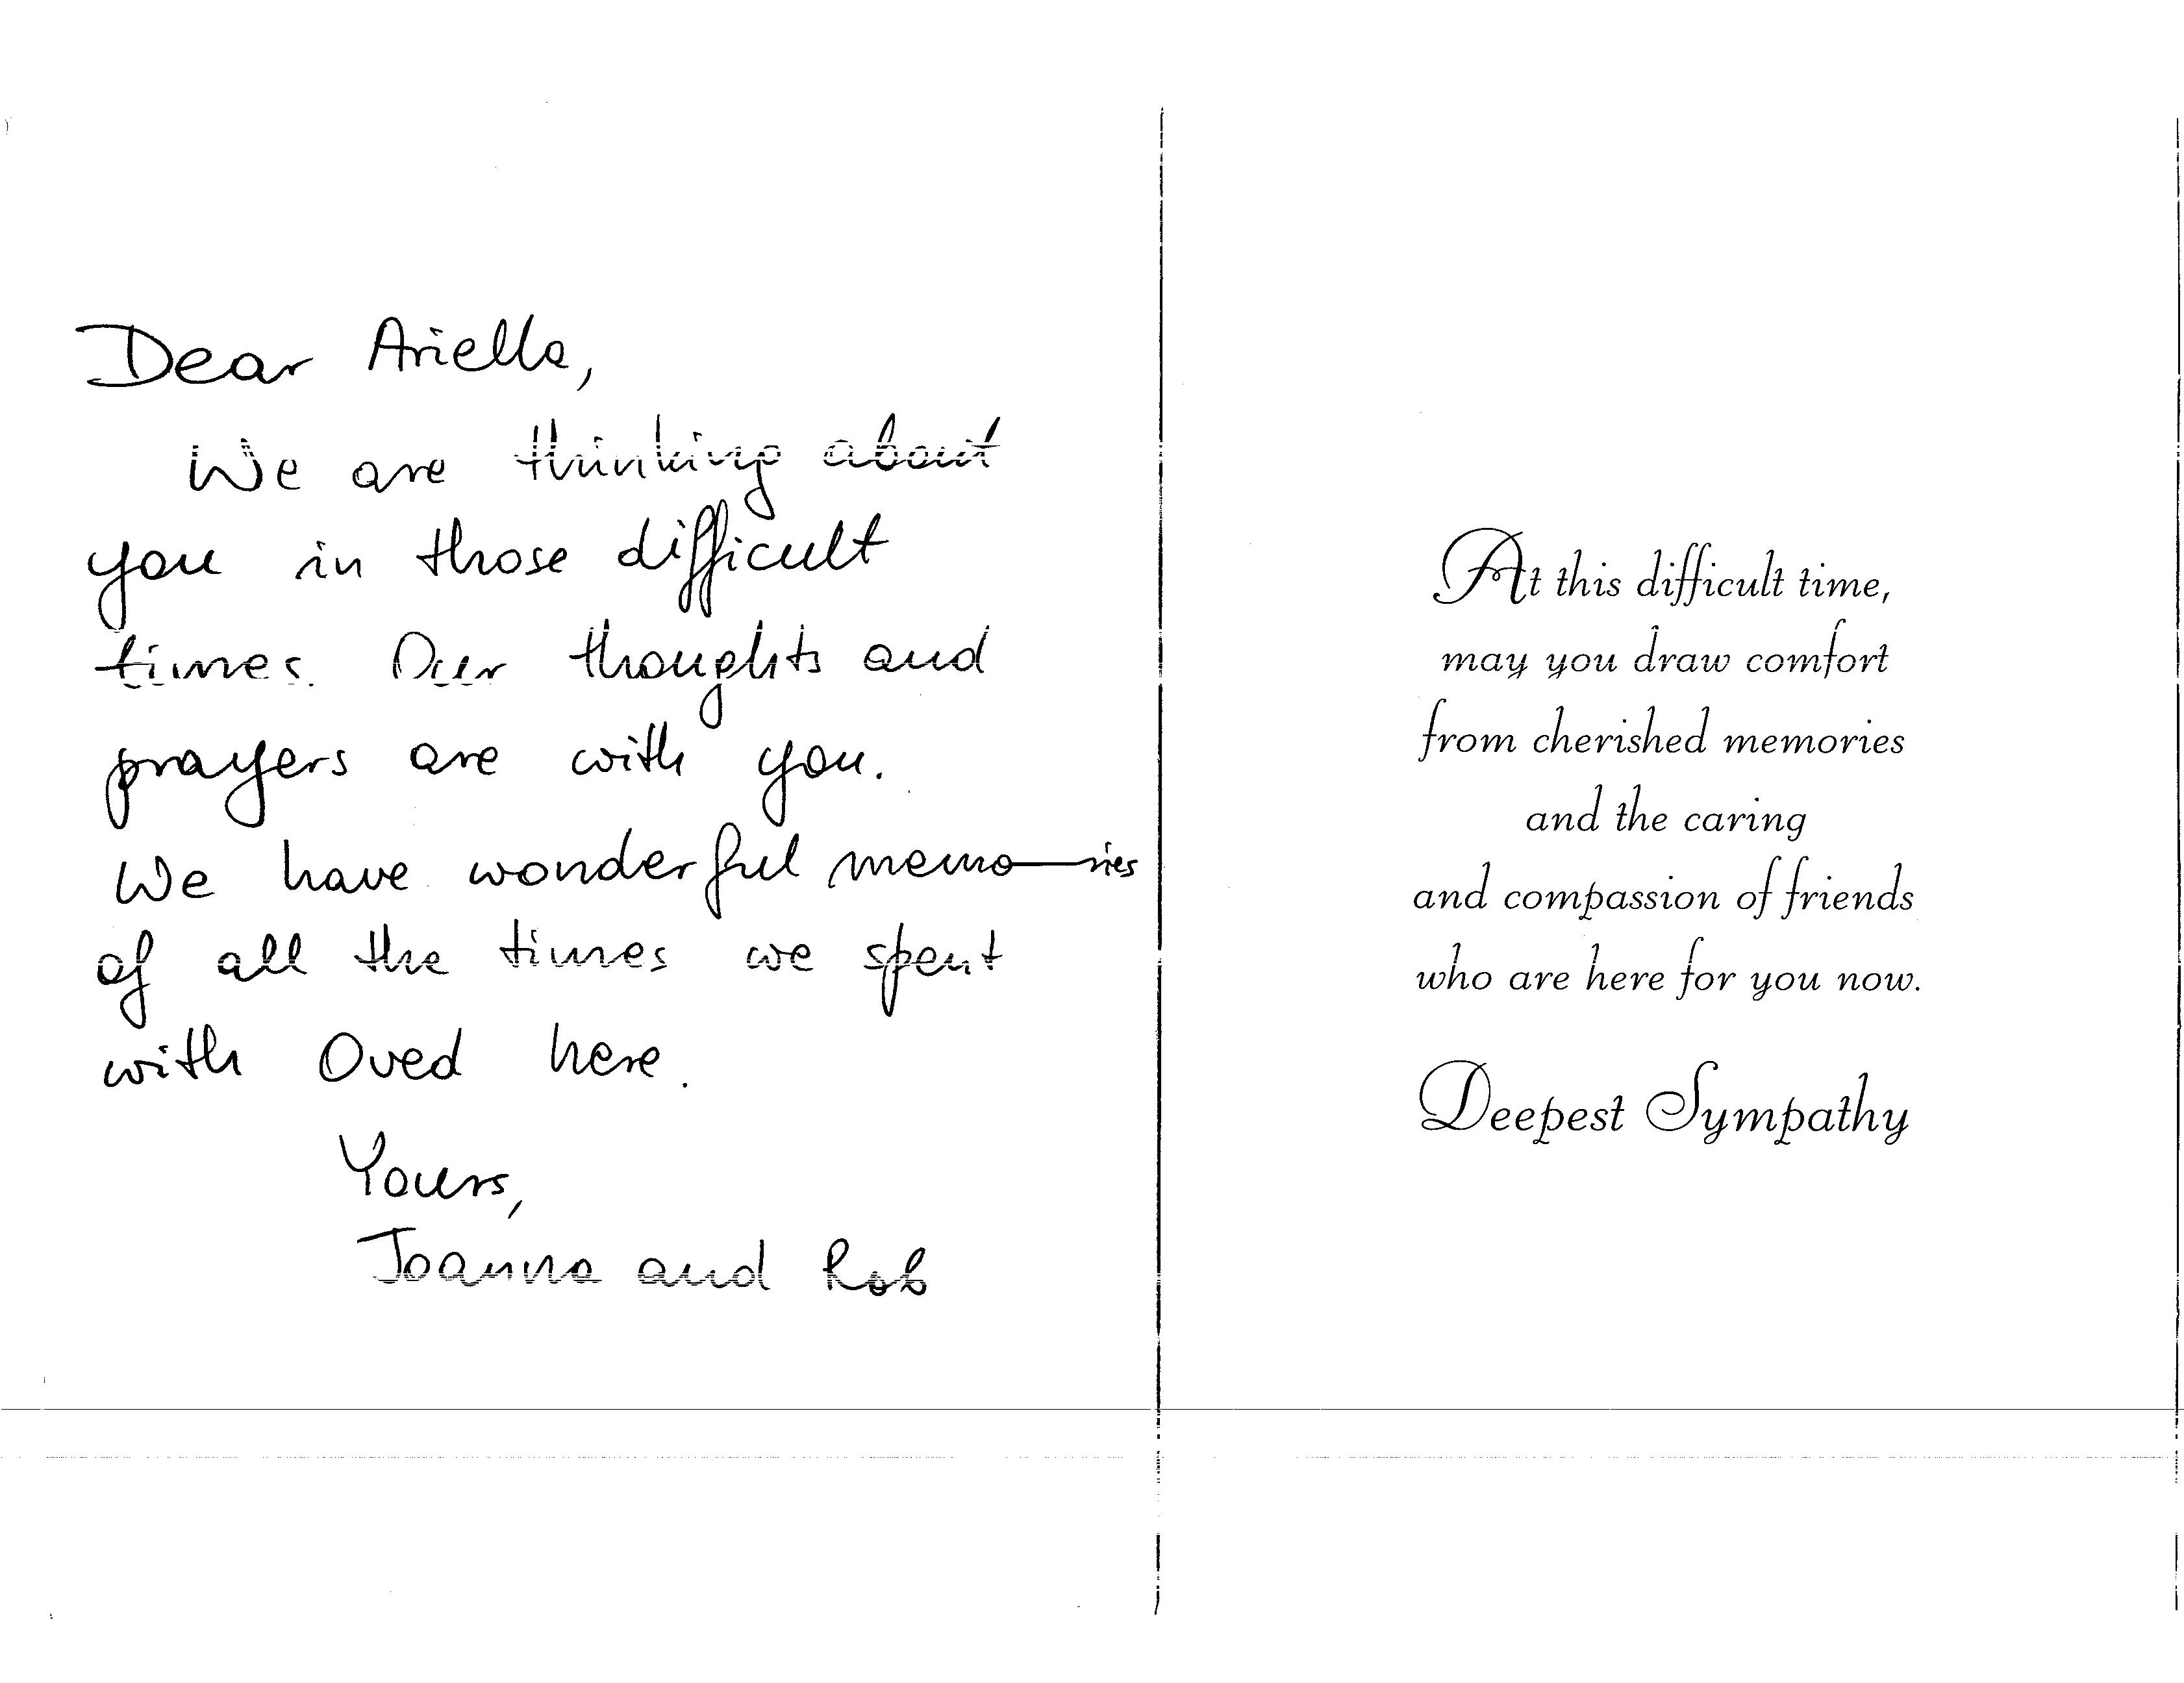 Dear Ariella,
We are thinking about
you in those difficult
times. Our thoughts and
prayers are with you.
We have wonderful memories
of all the times we spent
with Oved here.
Yours,
Joanna and Rob
At this difficult time,
may you draw comfort
from cherished memories
and the caring
and compassion of friends
who are here for you now.
Deepest Sympathy